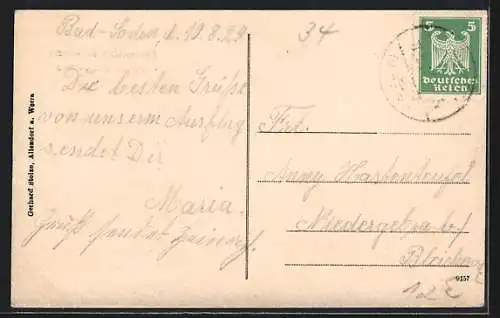 Bad-Soden, d. 10.8.29
34
Die besten Grüße
von unserm Ausflug
sendet Dir
Maria.
Gruß sendet Heinrich.
Frl.
Anny Hartenteufel
Niedergebra b/
Bleicherode
12 E
Gerhard Stolze, Allendorf a. Werra
9157
5 5
Deutsches
Reich